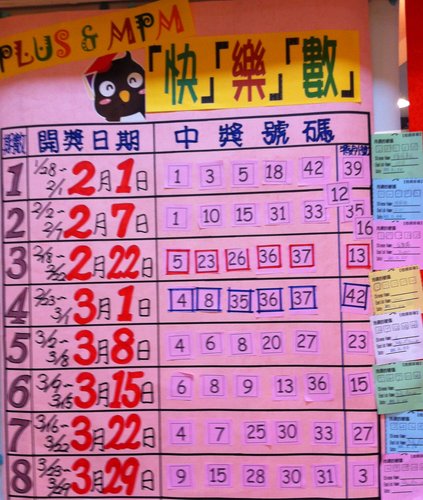 PLUS & MPM
「快」「樂」「數」
開獎日期 中獎號碼
1 1/28~2/1 2月1日 1 3 5 18 42 39
12
2 2/2~2/7 2月7日 1 10 15 31 33 35
16
3 2/8~2/22 2月22日 5 23 26 36 37 13
4 2/23~3/1 3月1日 4 8 35 36 37 42
5 3/2~3/8 3月8日 4 6 8 20 27 23
6 3/9~3/15 3月15日 6 8 9 13 36 15
7 3/16~3/22 3月22日 4 7 25 30 33 27
8 3/23~3/29 3月29日 9 15 28 30 31 3